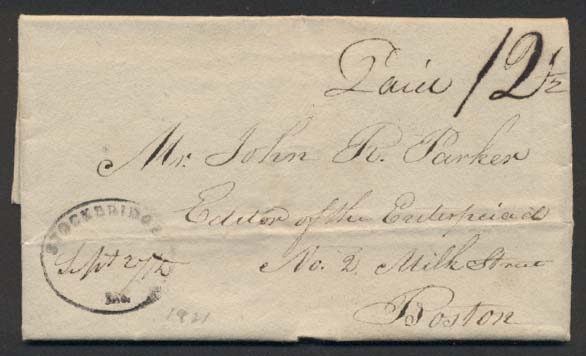 Paid 12½
Mr. John R. Parker
Editor of the Euterpeiad
No. 2 Milk Street
Boston
STOCKBRIDGE
Sept 27th
Ms.
1821